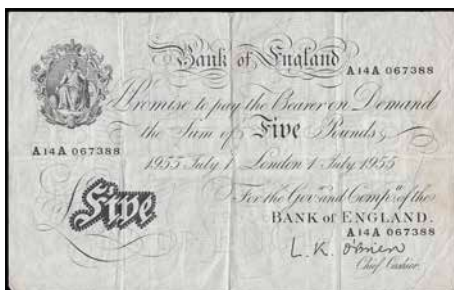 Bank of England
A14A 067388
I Promise to pay the Bearer on Demand
the Sum of Five Pounds
A14A 067388
1955 July 1 London 1 July 1955
For the Govr. and Compa. of the
BANK OF ENGLAND.
Five
A14A 067388
L. K. O'Brien
Chief Cashier